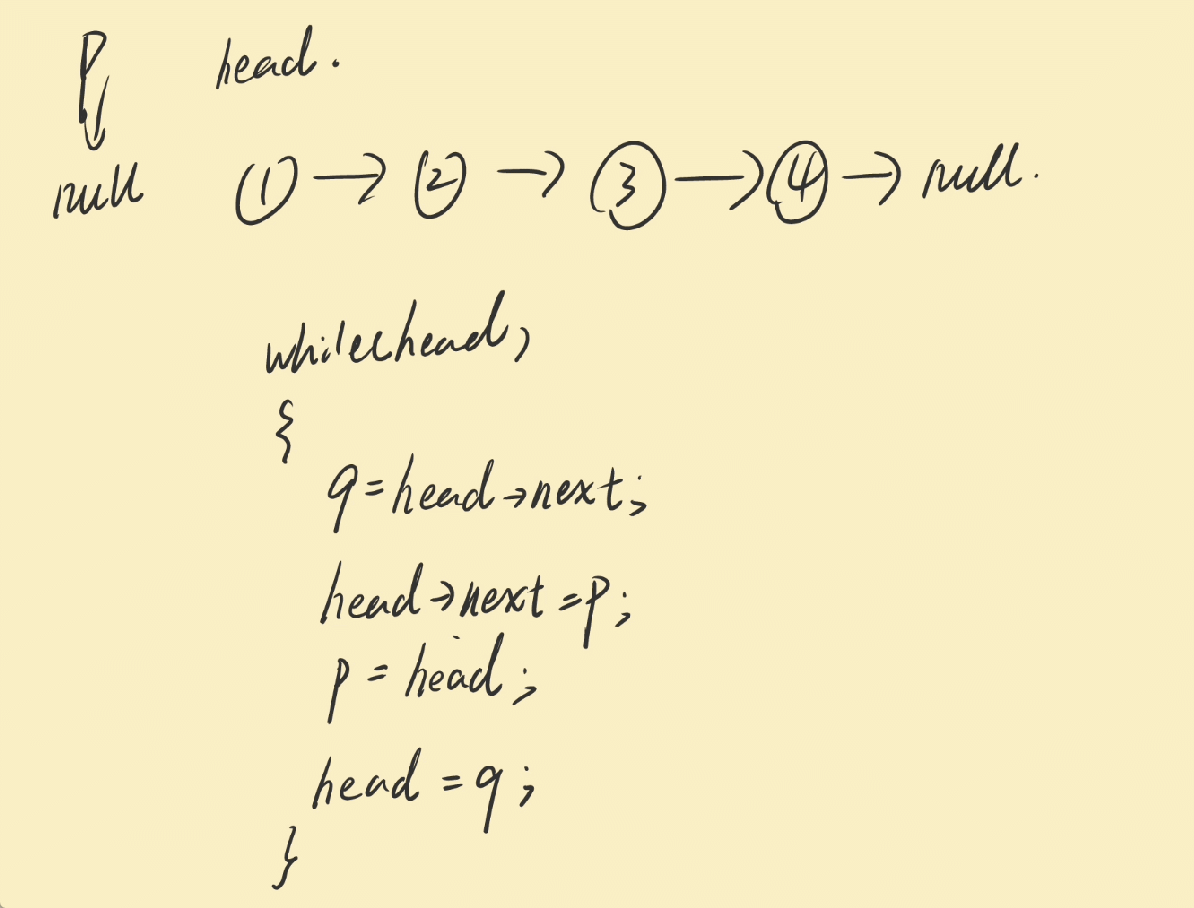 P head.
null ① → ② → ③ → ④ → null.
while(head)
{
q=head→next;
head→next=p;
p=head;
head=q;
}